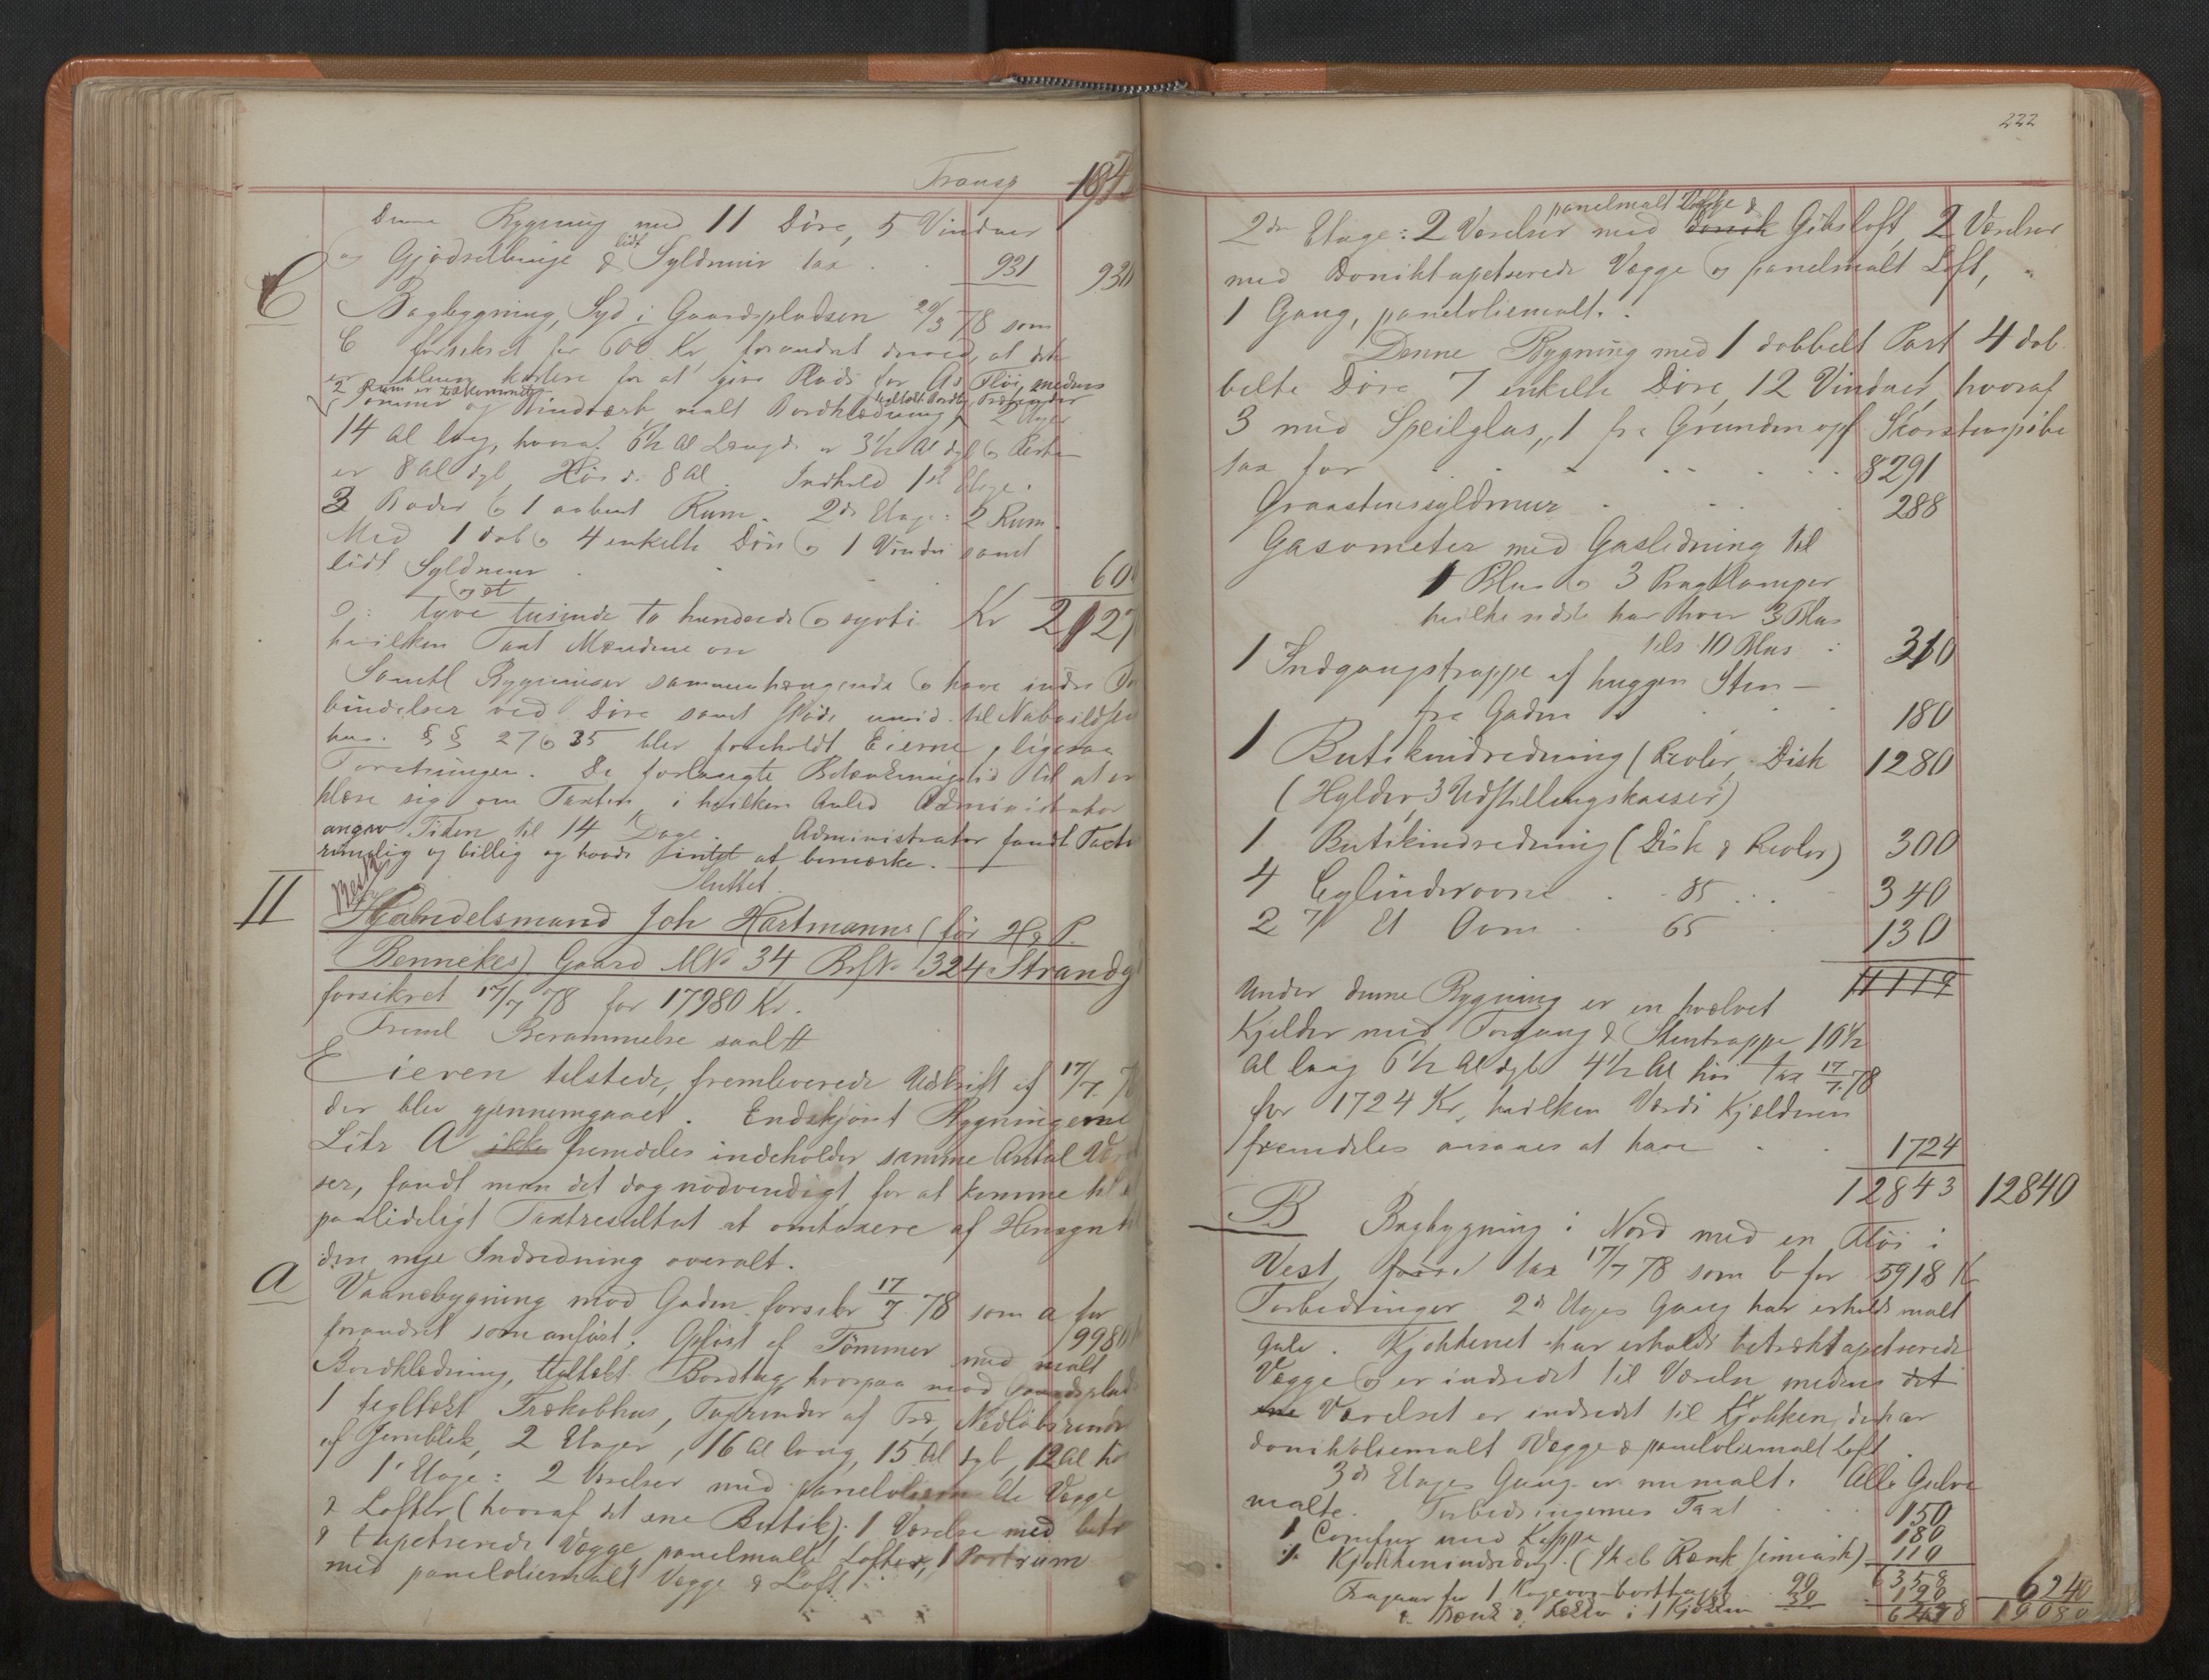 Transp 194
Denne Bygning med 11 Døre, 5 Vinduer
og Gjødselbinge & lidt Syldmuir tax 931 930
C Bagbygning, Syd i Gaardspladsen 29/3 78 som
C forsikret for 600 Kr, forandret derved, at den
er bleven kortere for at give Plads for As Fløi, medens
2 Rum er tilkommet
Tømmer og Bindværk malt Bordklædning, 2 Etager
14 Al lang, hvoraf 6 1/2 Al Længde er 3 1/2 Al dyb og Resten
er 8 Al dyb, Høide 8 Al. Indhold 1st Etage.
3 Boder og 1 aabent Rum. 2den Etage: 2 Rum.
Med 1 dob og 4 enkelte Døre og 1 Vindu samt
lidt Syldmur 60
og et
ɔ: tyve tusinde to hundrede og syvti Kr 2127
hvilken Taxt Mændene
Samtl Bygninger sammenhængende og have indre For
bindelser ved Døre samt støde umid. til Naboildst
hus. §§ 27 og 35 blev foreholdt Eierne, ligesaa
Foretningen. De forlangte Betænkningstid til at er
klære sig om Taxten, i hvilken Anled Administrator
angav Tiden til 14 Dage. Administrator fandt Taxten
rimelig og billig og havde intet at bemærke.
Sluttet.
II Handelsmand Joh Hartmanns (før H. P.
Bennekes) Gaard MNo 34 BrNo 324 Strandg
forsikret 17/7 78 for 17980 Kr.
Freml Berammelse saalt
Eieren tilstede, fremleverede Udskrift af 17/7 78
der blev gjennemgaaet. Endskjønt Bygningerne
Litr A ikke fremdeles indeholder samme Antal Værel
ser, fandt man det dog nødvendigt, for at komme til et
paalideligt Taxtresultat at omtaxere af Hensyn til
den nye Indredning overalt.
A Vaanebygning mod Gaden forsikr 17/7 78 som a for
forandret som anført. Opført af Tømmer 9980
Bordklædning, tegltækt Bordtag, hvorpaa mod Gaardsplads
1 tegltækt Trækobhus, Tagrender af Træ, Nedløbsrender
af Jernblik, 2 Etager, 16 Al lang, 15 Al dyb, 12 Al høi
1' Etage: 2 Værelser med paneloliemalte Vægge
& Lofter (hvoraf det ene Butik), 1 Værelse med betr
& tapetserede Vægge, panelmalte Lofter, 1 Portrum
med paneloliemalt Vægge & Loft.
222
2den Etage: 2 Værelser med panelmalt Vægge & Gibsloft, 2 Værelser
med Doniktapetserede Vægge og panelmalt Loft,
1 Gang, paneloliemalt.
Denne Bygning med 1 dobbelt Port 4 dob
belte Døre 7 enkelte Døre, 12 Vinduer, hvoraf
3 med Speilglas, 1 fra Grunden opf Skorstenspibe
tax for 8291
Graastenssyldmur 288
Gasometer med Gasledning til
1 Blus og 3 Bragtlamper
hvilke sidste har hver 3 Blus
tils 10 Blus : 310
1 Indgangstrappe af huggen Sten
fra Gaden 180
1 Butikindredning (Reoler, Disk 1280
(Hylder, 3 Udstillingskasser)
1 Butikindredning (Disk & Reoler) 300
4 Cylinderovne 85 340
2 Et Ovne 65 130
11119
Under denne Bygning er en hvælvet
Kjelder med Forgang & Stentrappe 10 1/2
Al lang 6 1/2 Al dyb 4 1/2 Al høi tax 17/7 78
for 1724 Kr, hvilken Værdi Kjelderen
fremdeles ansaaes at have 1724
12843 12840
B Bagbygning i Nord med en Fløi i
Vest tax 17/7 78 som b for 5918 Kr
Forbedringer. 2d Etages Gang har erholdt malt
Gulv. Kjøkkenet har erholdt betræktapetserede
Vægge og er indredet til Værelse medens det
ene Værelset er indredet til Kjøkken, der har
donikoliemalt Vægge & paneloliemalt Loft.
3de Etages Gang er nu malt. Alle Gulve
malte. Forbedringernes Taxt 150
1 Comfur med Kappe 180
1 Kjøkkenindredng. (Skab Bænk ) 110
6358
Fragaar for 1 Kogeovn borttaget 90
& Bænk & i 1 Kjøkken 30 120 6240
19080